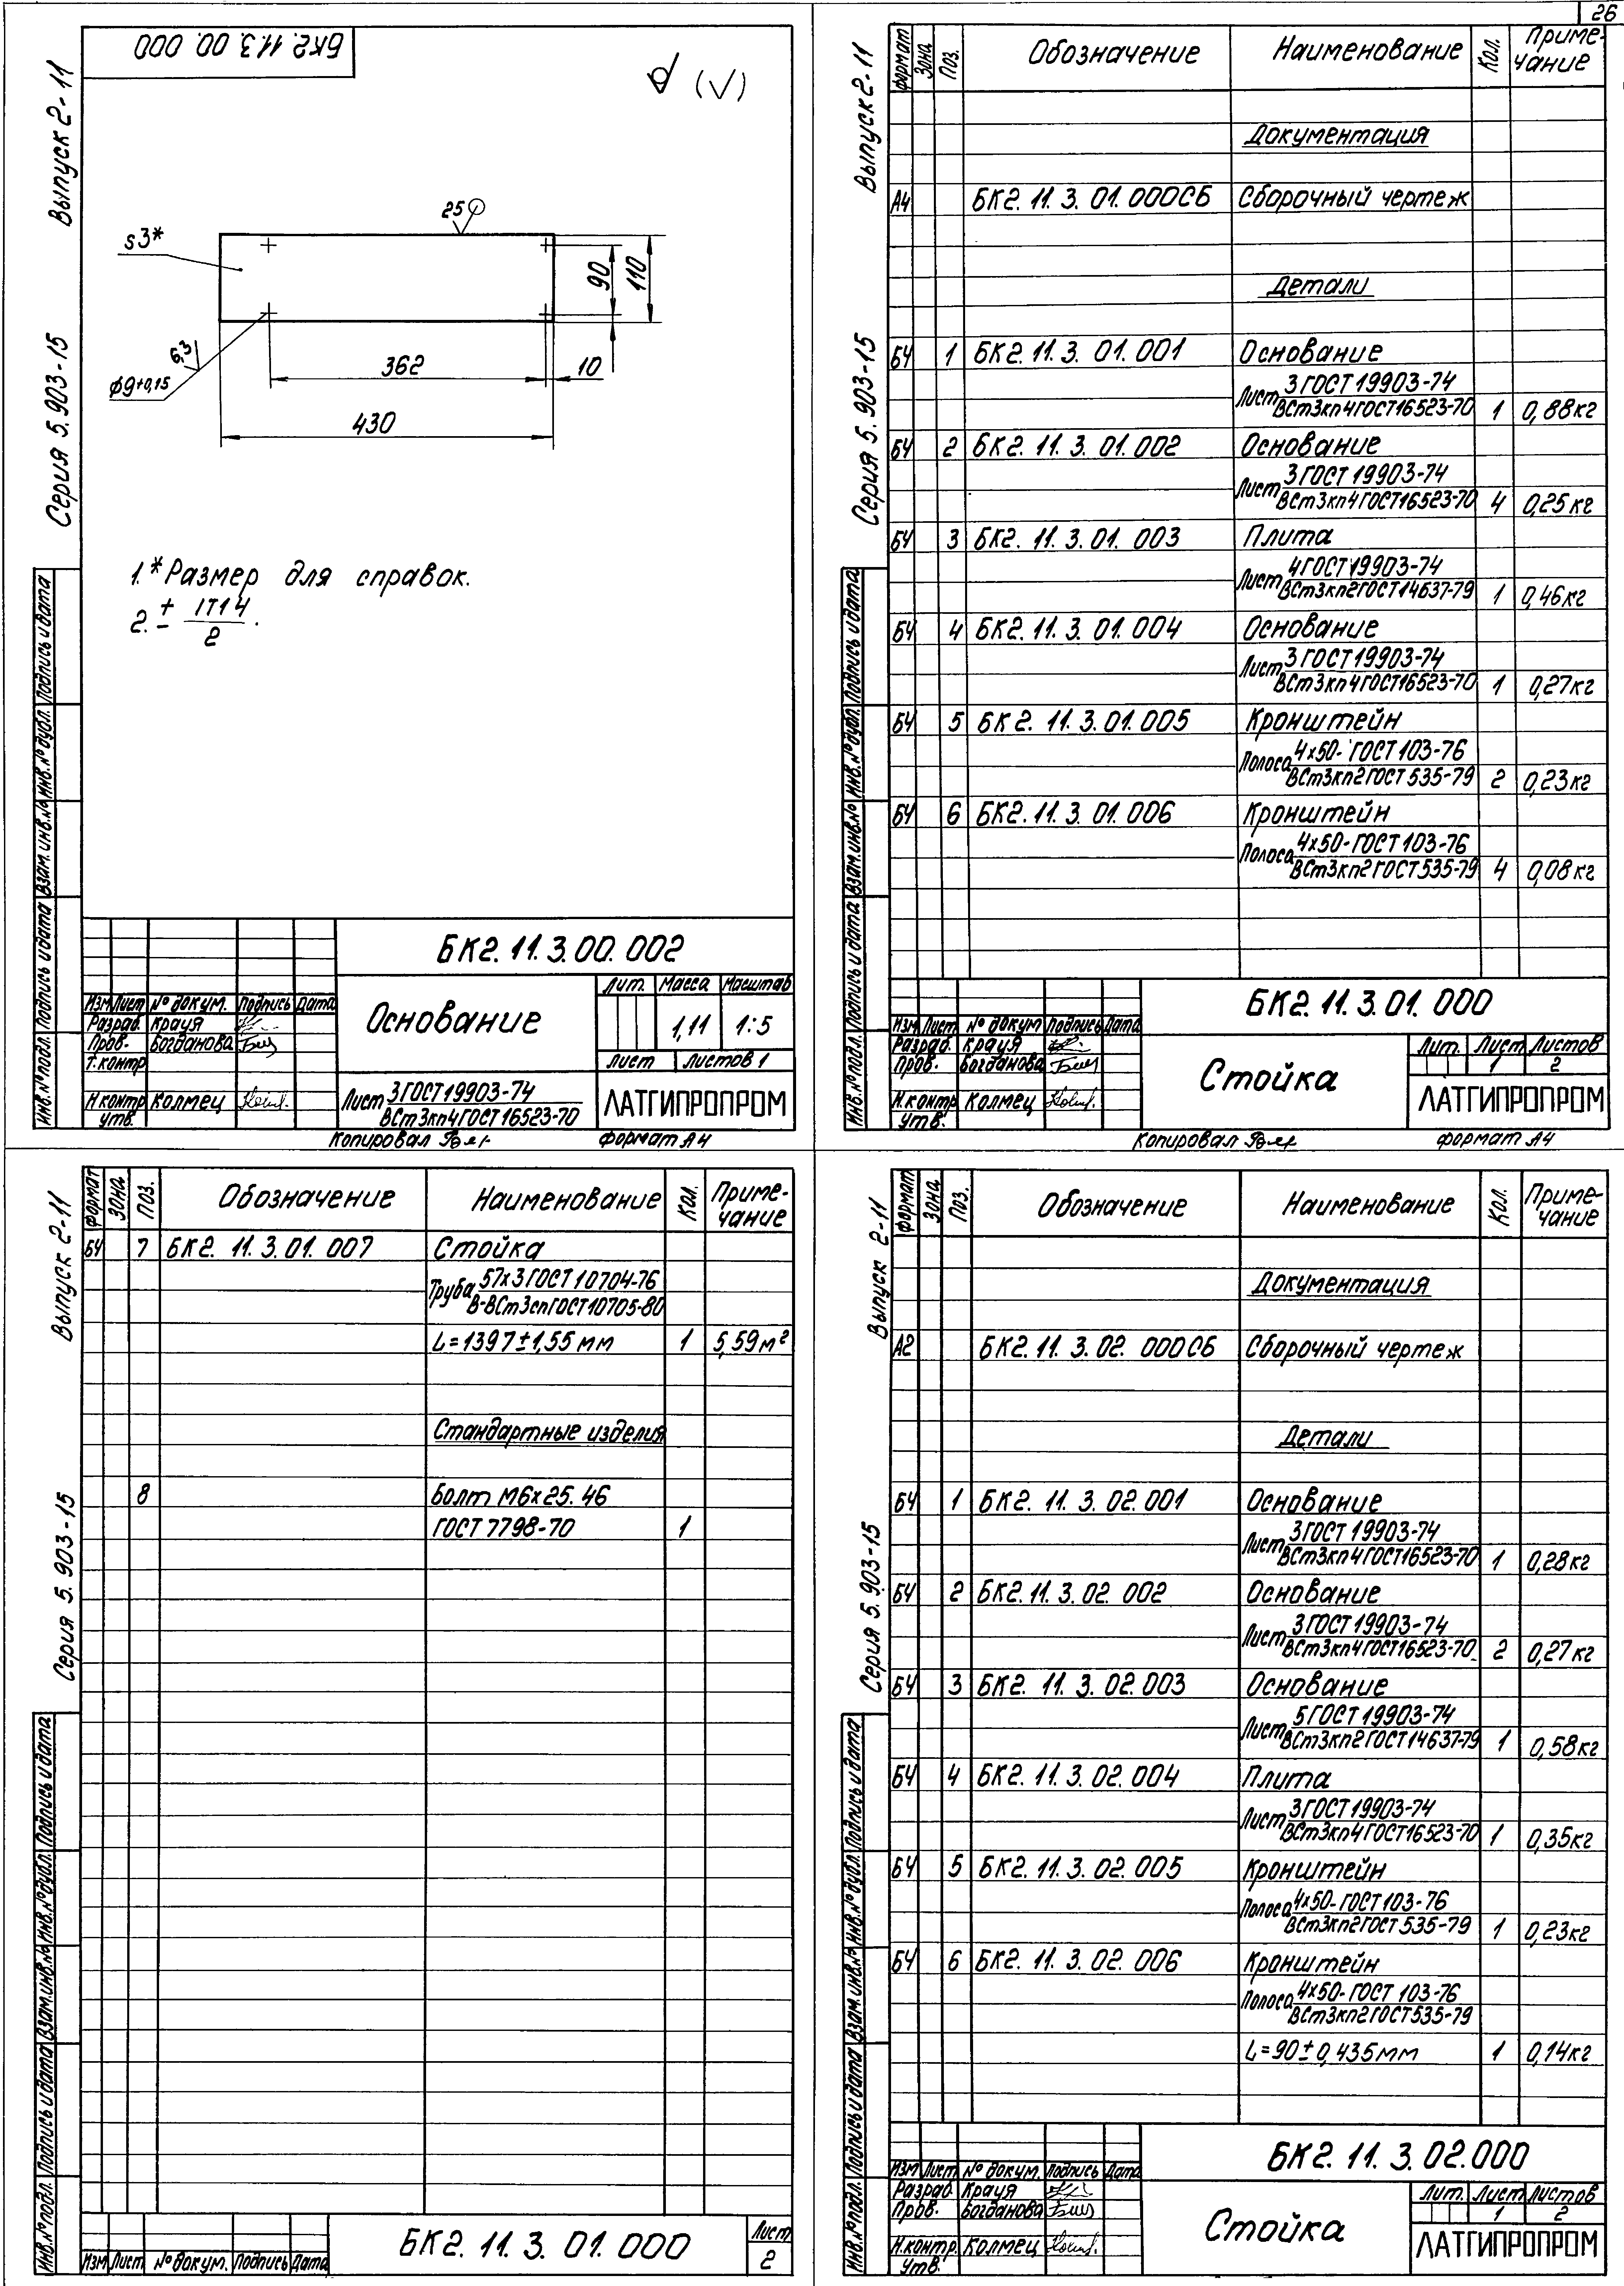 26
БК2.11.3.00.000
Выпуск 2-11
Серия 5.903-15
√ (√)
25
s3*
90
110
6,3
ϕ9+0,15
362
10
430
1.* Размер для справок.
2. ± IT14
2
Инв.№подл. Подпись и дата Взам.инв.№ Инв.№дубл. Подпись и дата
БК2.11.3.00.002
Изм Лист № докум. Подпись Дата
Разраб. Крауя
Пров. Богданова
Т.контр
Н.контр Колмец
Утв.
Основание
Лит. Масса Масштаб
1,11 1:5
Лист Листов 1
Лист 3 ГОСТ 19903-74
ВСт3кп4ГОСТ16523-70
ЛАТГИПРОПРОМ
Копировал
формат А4
Выпуск 2-11
Серия 5.903-15
формат Зона Поз. Обозначение Наименование Кол. Примечание
Документация
А4 БК2.11.3.01.000СБ Сборочный чертеж
Детали
БЧ 1 БК2.11.3.01.001 Основание
Лист 3 ГОСТ 19903-74
ВСт3кп4ГОСТ16523-70 1 0,88кг
БЧ 2 БК2.11.3.01.002 Основание
Лист 3 ГОСТ 19903-74
ВСт3кп4ГОСТ16523-70 4 0,25кг
БЧ 3 БК2.11.3.01.003 Плита
Лист 4ГОСТ19903-74
ВСт3кп2ГОСТ14637-79 1 0,46кг
БЧ 4 БК2.11.3.01.004 Основание
Лист 3 ГОСТ 19903-74
ВСт3кп4ГОСТ16523-70 1 0,27кг
БЧ 5 БК2.11.3.01.005 Кронштейн
Полоса 4х50-ГОСТ 103-76
ВСт3кп2ГОСТ 535-79 2 0,23кг
БЧ 6 БК2.11.3.01.006 Кронштейн
Полоса 4х50-ГОСТ 103-76
ВСт3кп2ГОСТ535-79 4 0,08кг
Инв.№подл. Подпись и дата Взам.инв.№ Инв.№дубл. Подпись и дата
БК2.11.3.01.000
Изм Лист № докум Подпись Дата
Разраб. Крауя
Пров. Богданова
Н.контр Колмец
Утв.
Стойка
Лит. Лист Листов
1 2
ЛАТГИПРОПРОМ
Копировал
формат А4
Выпуск 2-11
Серия 5.903-15
формат Зона Поз. Обозначение Наименование Кол. Примечание
БЧ 7 БК2.11.3.01.007 Стойка
Труба 57х3 ГОСТ 10704-76
В-ВСт3спГОСТ10705-80
L=1397±1,55 мм 1 5,59м²
Стандартные изделия
8 Болт М6х25.46
ГОСТ 7798-70 1
Инв.№подл. Подпись и дата Взам.инв.№ Инв.№дубл. Подпись и дата
Изм Лист № докум. Подпись Дата
БК2.11.3.01.000
Лист
2
Выпуск 2-11
Серия 5.903-15
формат Зона Поз. Обозначение Наименование Кол. Примечание
Документация
А2 БК2.11.3.02.000СБ Сборочный чертеж
Детали
БЧ 1 БК2.11.3.02.001 Основание
Лист 3 ГОСТ 19903-74
ВСт3кп4ГОСТ16523-70 1 0,28кг
БЧ 2 БК2.11.3.02.002 Основание
Лист 3 ГОСТ 19903-74
ВСт3кп4ГОСТ16523-70 2 0,27кг
БЧ 3 БК2.11.3.02.003 Основание
Лист 5 ГОСТ 19903-74
ВСт3кп2ГОСТ14637-79 1 0,58кг
БЧ 4 БК2.11.3.02.004 Плита
Лист 3 ГОСТ 19903-74
ВСт3кп4ГОСТ16523-70 1 0,35кг
БЧ 5 БК2.11.3.02.005 Кронштейн
Полоса 4х50-ГОСТ 103-76
ВСт3кп2ГОСТ 535-79 1 0,23кг
БЧ 6 БК2.11.3.02.006 Кронштейн
Полоса 4х50-ГОСТ 103-76
ВСт3кп2ГОСТ535-79
L=90±0,435мм 1 0,14кг
Инв.№подл. Подпись и дата Взам.инв.№ Инв.№дубл. Подпись и дата
БК2.11.3.02.000
Изм Лист № докум. Подпись Дата
Разраб. Крауя
Пров. Богданова
Н.контр. Колмец
Утв.
Стойка
Лит. Лист Листов
1 2
ЛАТГИПРОПРОМ